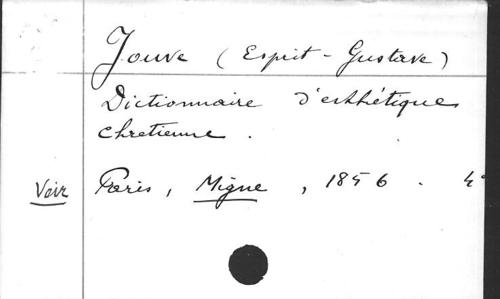 Jouve (Esprit-Gustave)
Dictionnaire d'esthétique
chretienne.
Voir Paris, Migne, 1856. 4°